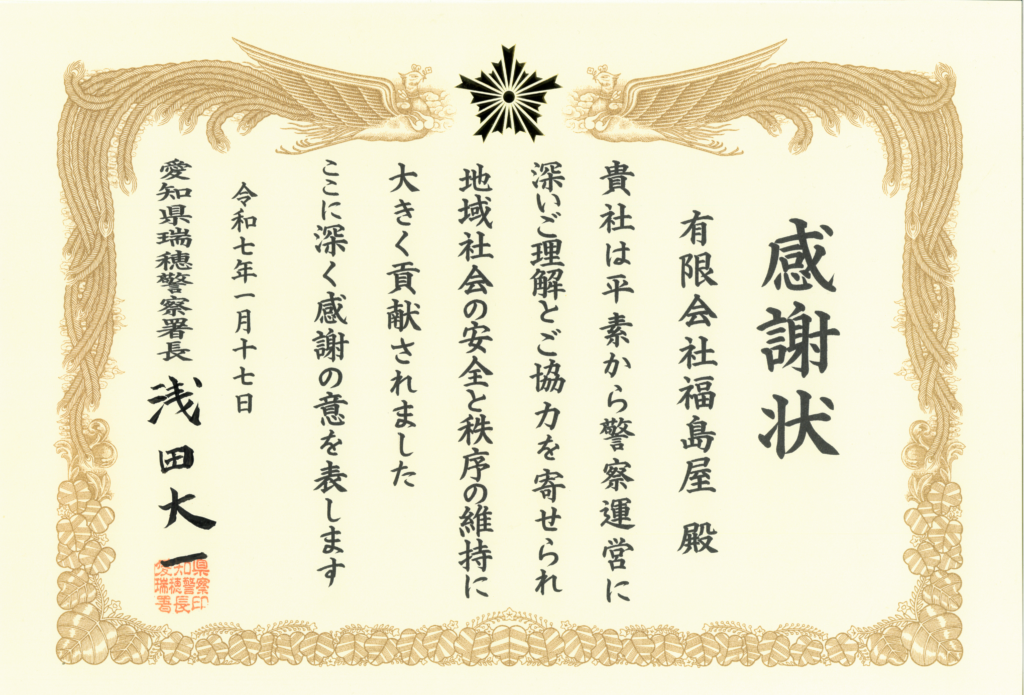 感謝状
有限会社福島屋 殿
貴社は平素から警察運営に
深いご理解とご協力を寄せられ
地域社会の安全と秩序の維持に
大きく貢献されました
ここに深く感謝の意を表します
令和七年一月十七日
愛知県瑞穂警察署長 浅田大一